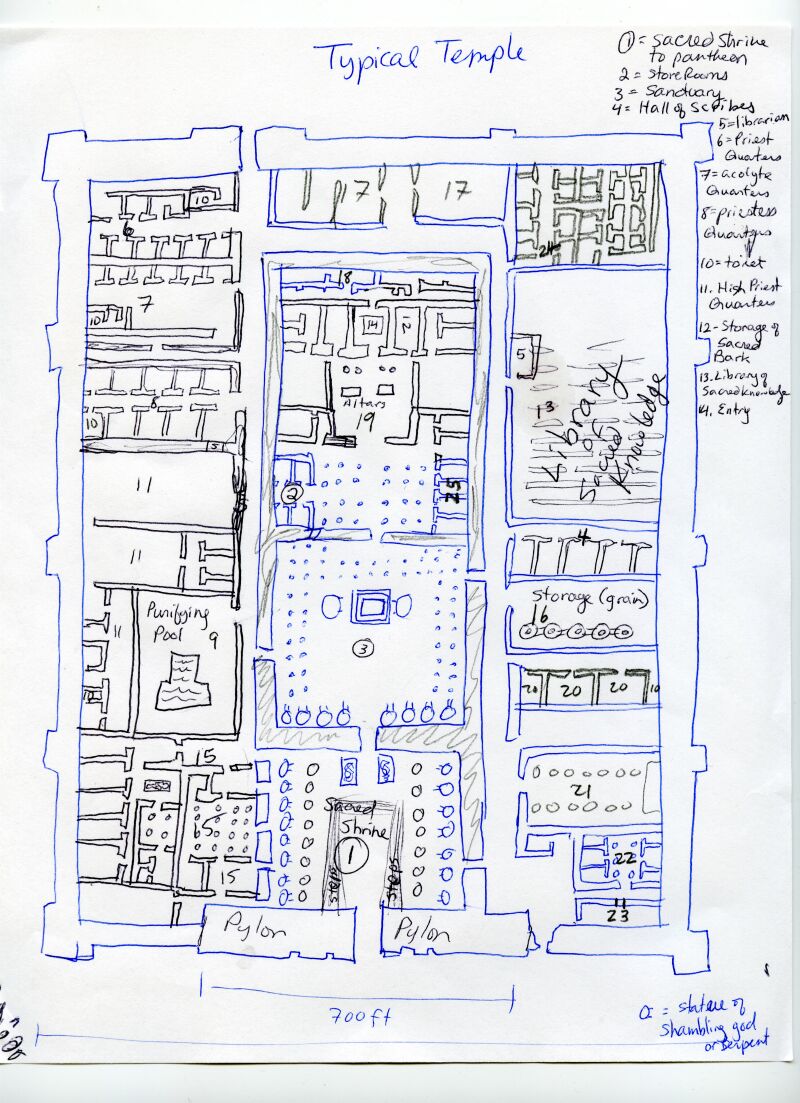 Typical Temple
① = Sacred Shrine
to pantheon
2 = Store Rooms
3 = Sanctuary
4 = Hall of Scribes
5 = librarian
6 = Priest
Quarters
7 = acolyte
Quarters
8 = priestess
Quarters
10 = toilet
11. High Priest
Quarters
12 - Storage of
Sacred
Bark
13. Library of
Sacred Knowledge
14. Entry
10
6
17
17
24
7
10
18
14
12
5
8
10
Altars
19
13
Library
of
Sacred
Knowledge
5
11
②
25
4
11
Storage (grain)
16
③
11
Purifying
Pool 9
20
20
20
10
15
15
15
21
Sacred
Shrine
①
Steps
Steps
22
23
Pylon
Pylon
700 ft
= statue of
Shambling god
or Serpent